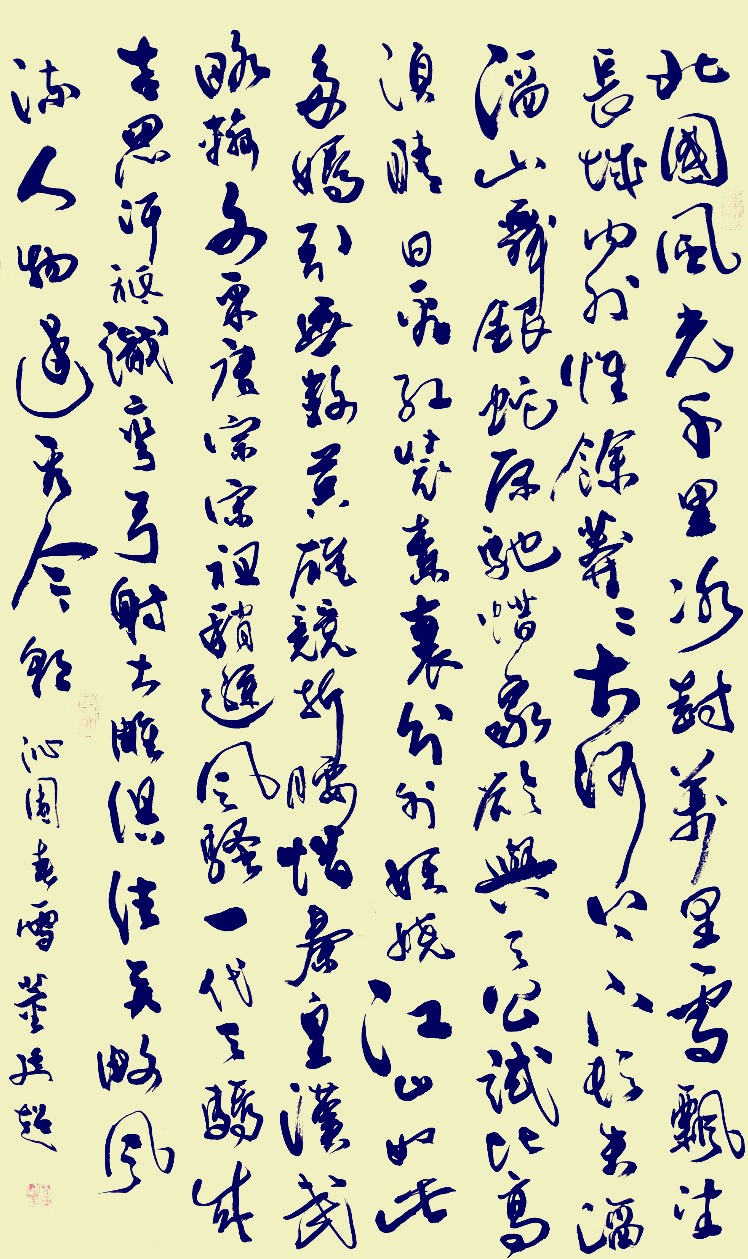 北國風光千里冰封萬里雪飄望
長城內外惟餘莽〻大河上下頓失滔
滔山舞銀蛇原馳蜡象欲與天公試比高
須晴日看紅裝素裹分外妖嬈江山如此
多嬌引無數英雄競折腰惜秦皇漢武
略輸文采唐宗宋祖稍遜風騷一代天驕成
吉思汗祗識彎弓射大雕俱往矣數風
流人物還看今朝 沁園春雪